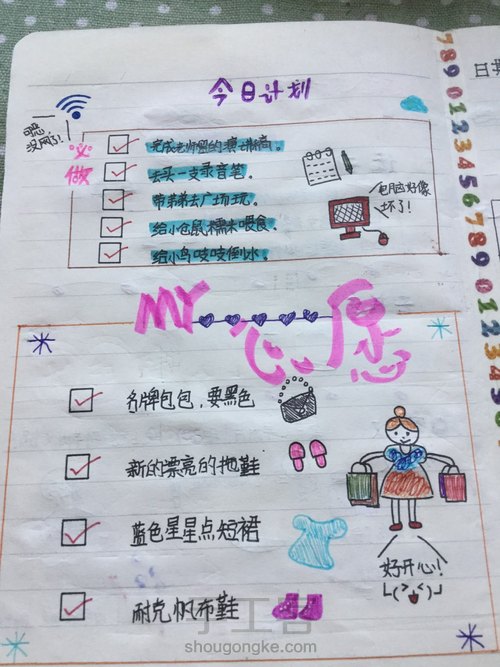 今日计划
可恶
没网了!
必做
完成老师留的演讲稿。
去买一支录音笔。
带弟弟去广场玩。
给小仓鼠糯米喂食。
给小鸟吱吱倒水。
电脑好像
坏了!
MY 心愿
名牌包包,要黑色
新的漂亮的拖鞋
蓝色星星点短裙
耐克帆布鞋
好开心!
日
789012345678901234567890
手工客
shougongke.com